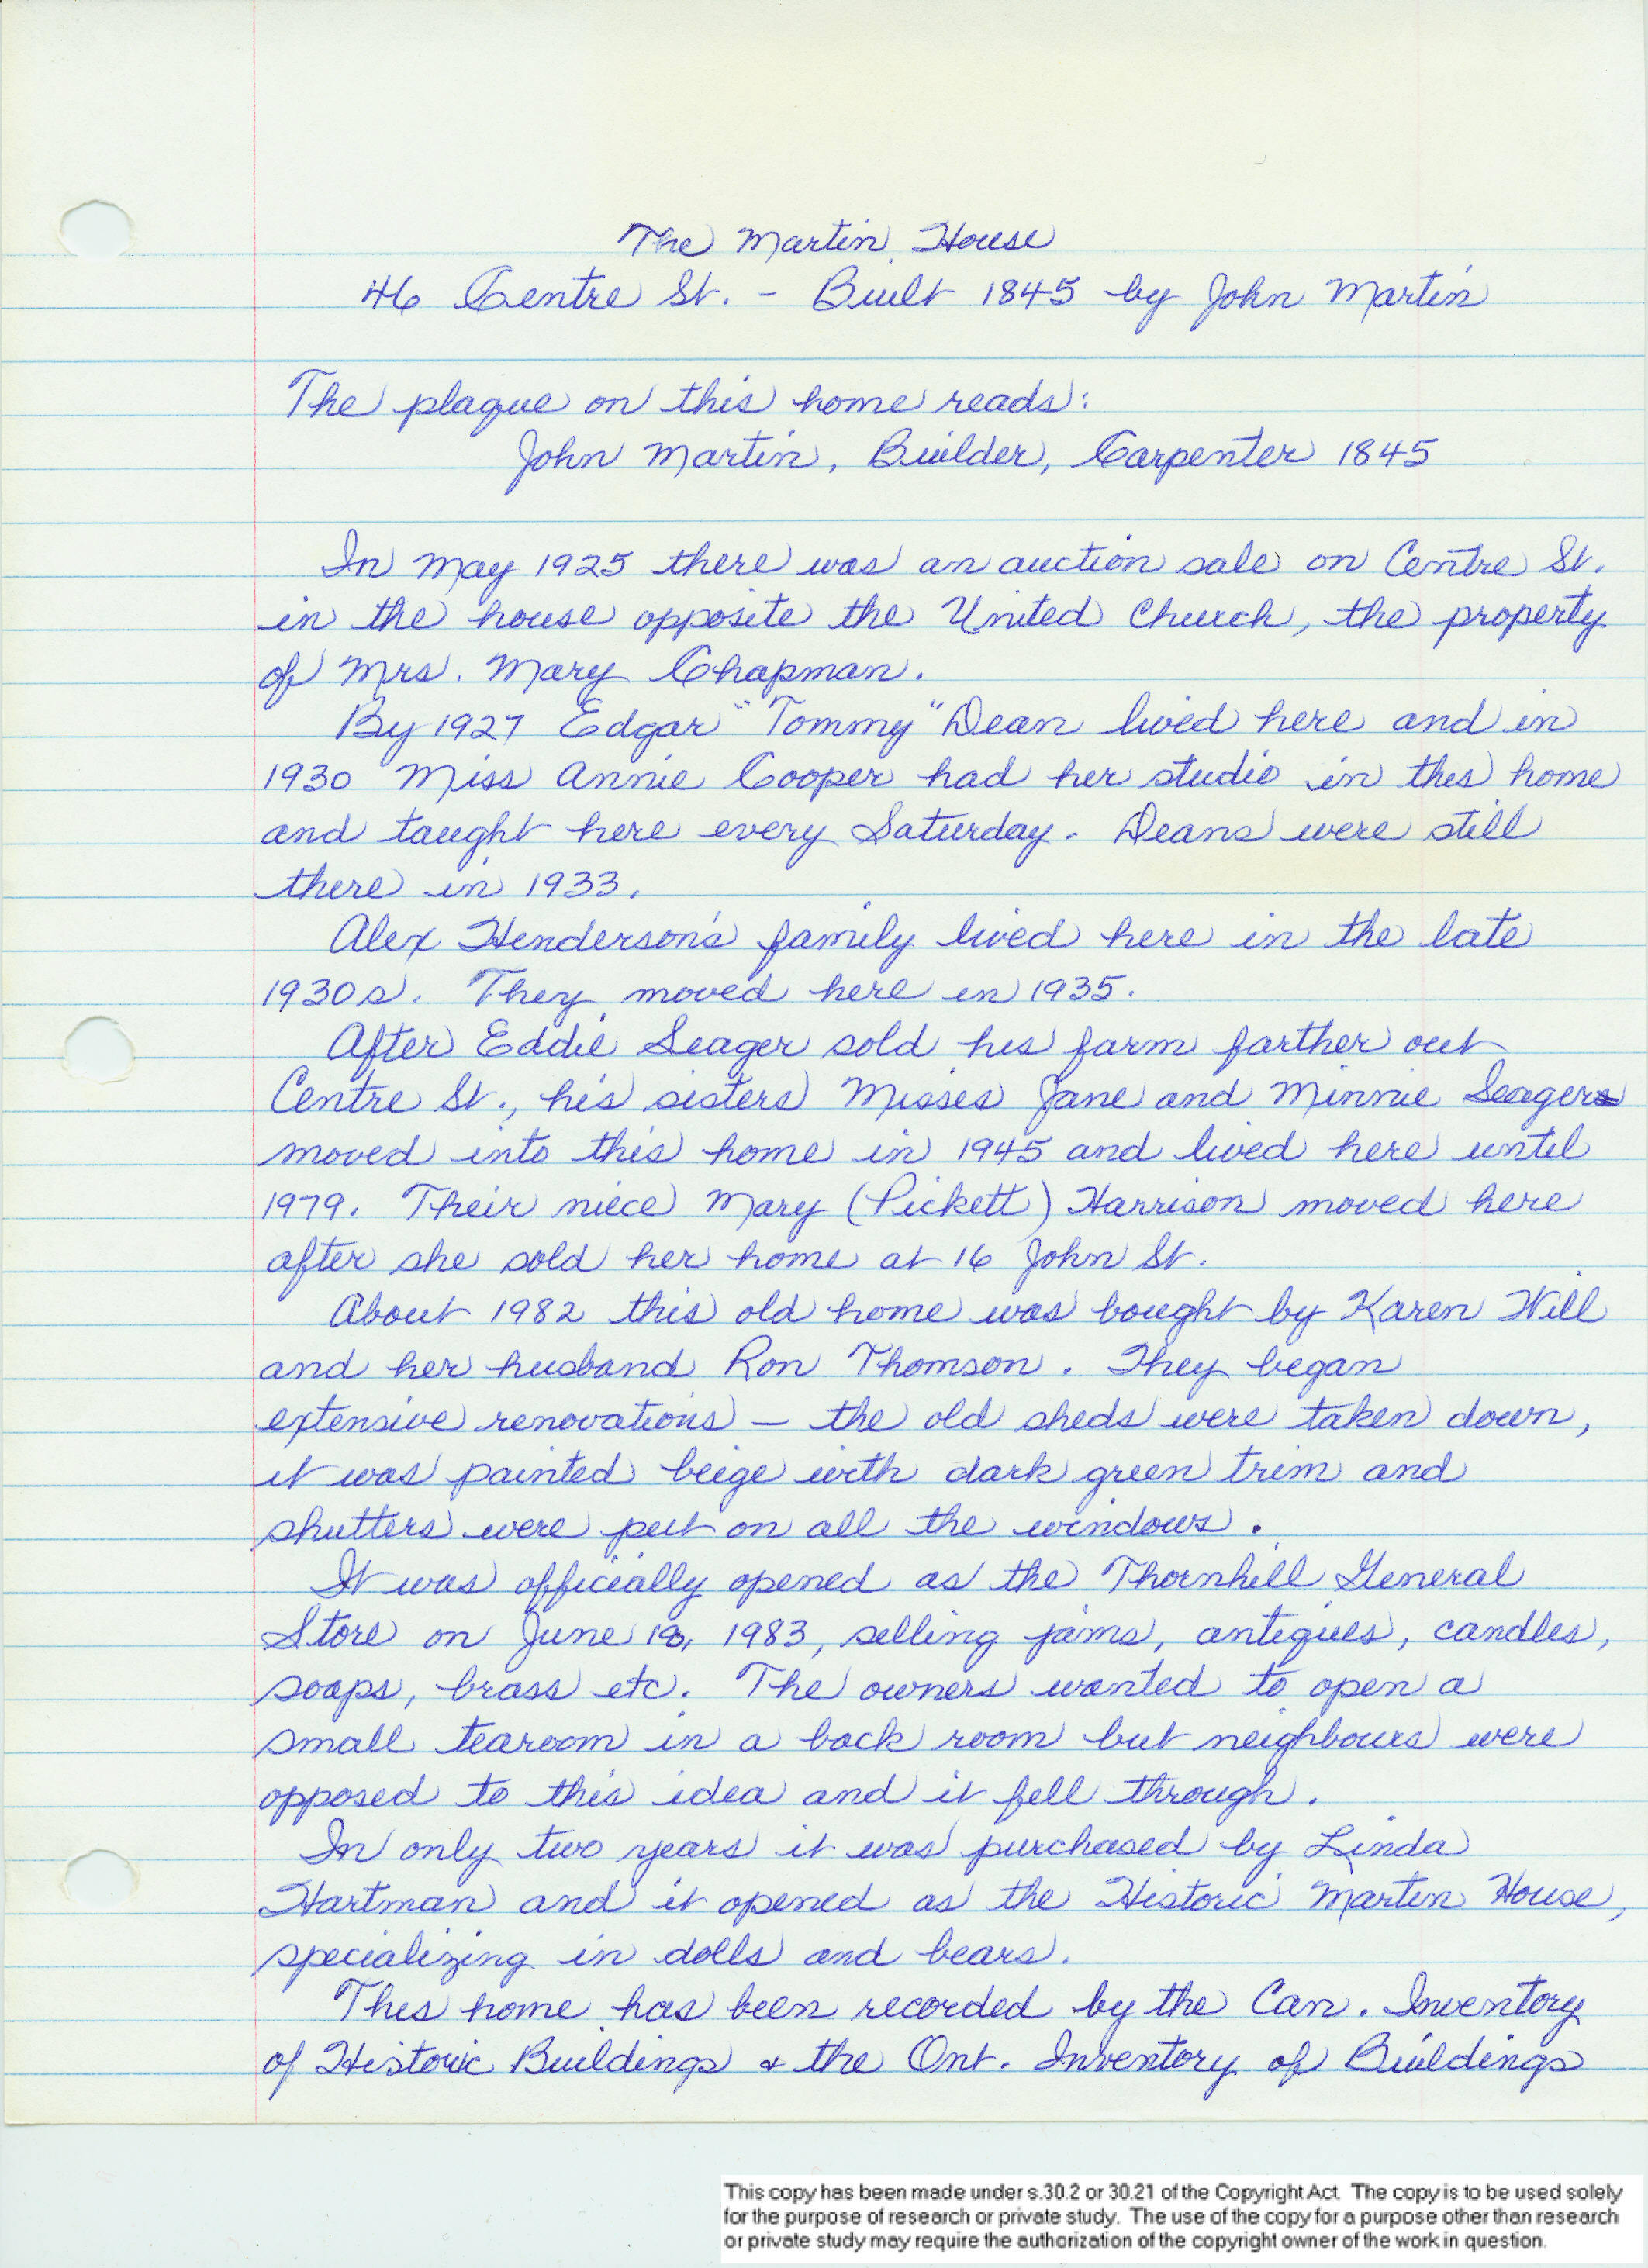 The Martin House
46 Centre St. - Built 1845 by John Martin
The plaque on this home reads:
John Martin, Builder, Carpenter 1845
In May 1925 there was an auction sale on Centre St.
in the house opposite the United Church, the property
of Mrs. Mary Chapman.
By 1927 Edgar "Tommy" Dean lived here and in
1930 Miss Annie Cooper had her studio in this home
and taught here every Saturday. Deans were still
there in 1933.
Alex Henderson's family lived here in the late
1930s. They moved here in 1935.
After Eddie Seager sold his farm farther out
Centre St., his sisters Misses Jane and Minnie Seager
moved into this home in 1945 and lived here until
1979. Their niece Mary (Pickett) Harrison moved here
after she sold her home at 16 John St.
About 1982 this old home was bought by Karen Hill
and her husband Ron Thomson. They began
extensive renovations - the old sheds were taken down,
it was painted beige with dark green trim and
shutters were put on all the windows.
It was officially opened as the Thornhill General
Store on June 1983, selling jams, antiques, candles,
soaps, brass etc. The owners wanted to open a
small tearoom in a back room but neighbours were
opposed to this idea and it fell through.
In only two years it was purchased by Linda
Hartman and it opened as the Historic Martin House,
specializing in dolls and bears.
This home has been recorded by the Can. Inventory
of Historic Buildings & the Ont. Inventory of Buildings
This copy has been made under s.30.2 or 30.21 of the Copyright Act. The copy is to be used solely
for the purpose of research or private study. The use of the copy for a purpose other than research
or private study may require the authorization of the copyright owner of the work in question.